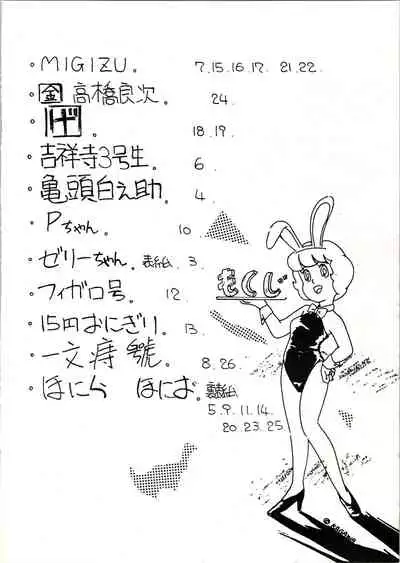 ・MIGIZU。 7.15.16.17. 21.22.
・金 高橋良次。 24.
・げ。 18.19.
・吉祥寺3号生 6.
・亀頭白之助. 4.
・Pちゃん. 10.
・ゼリーちゃん. 表紙. 3.
・フィガロ号. 12.
・15円おにぎり. 13.
・一文痔 號。 8.26.
・ほにゃら ほにお。
5.9.11.14.
20.23.25.
もくじ